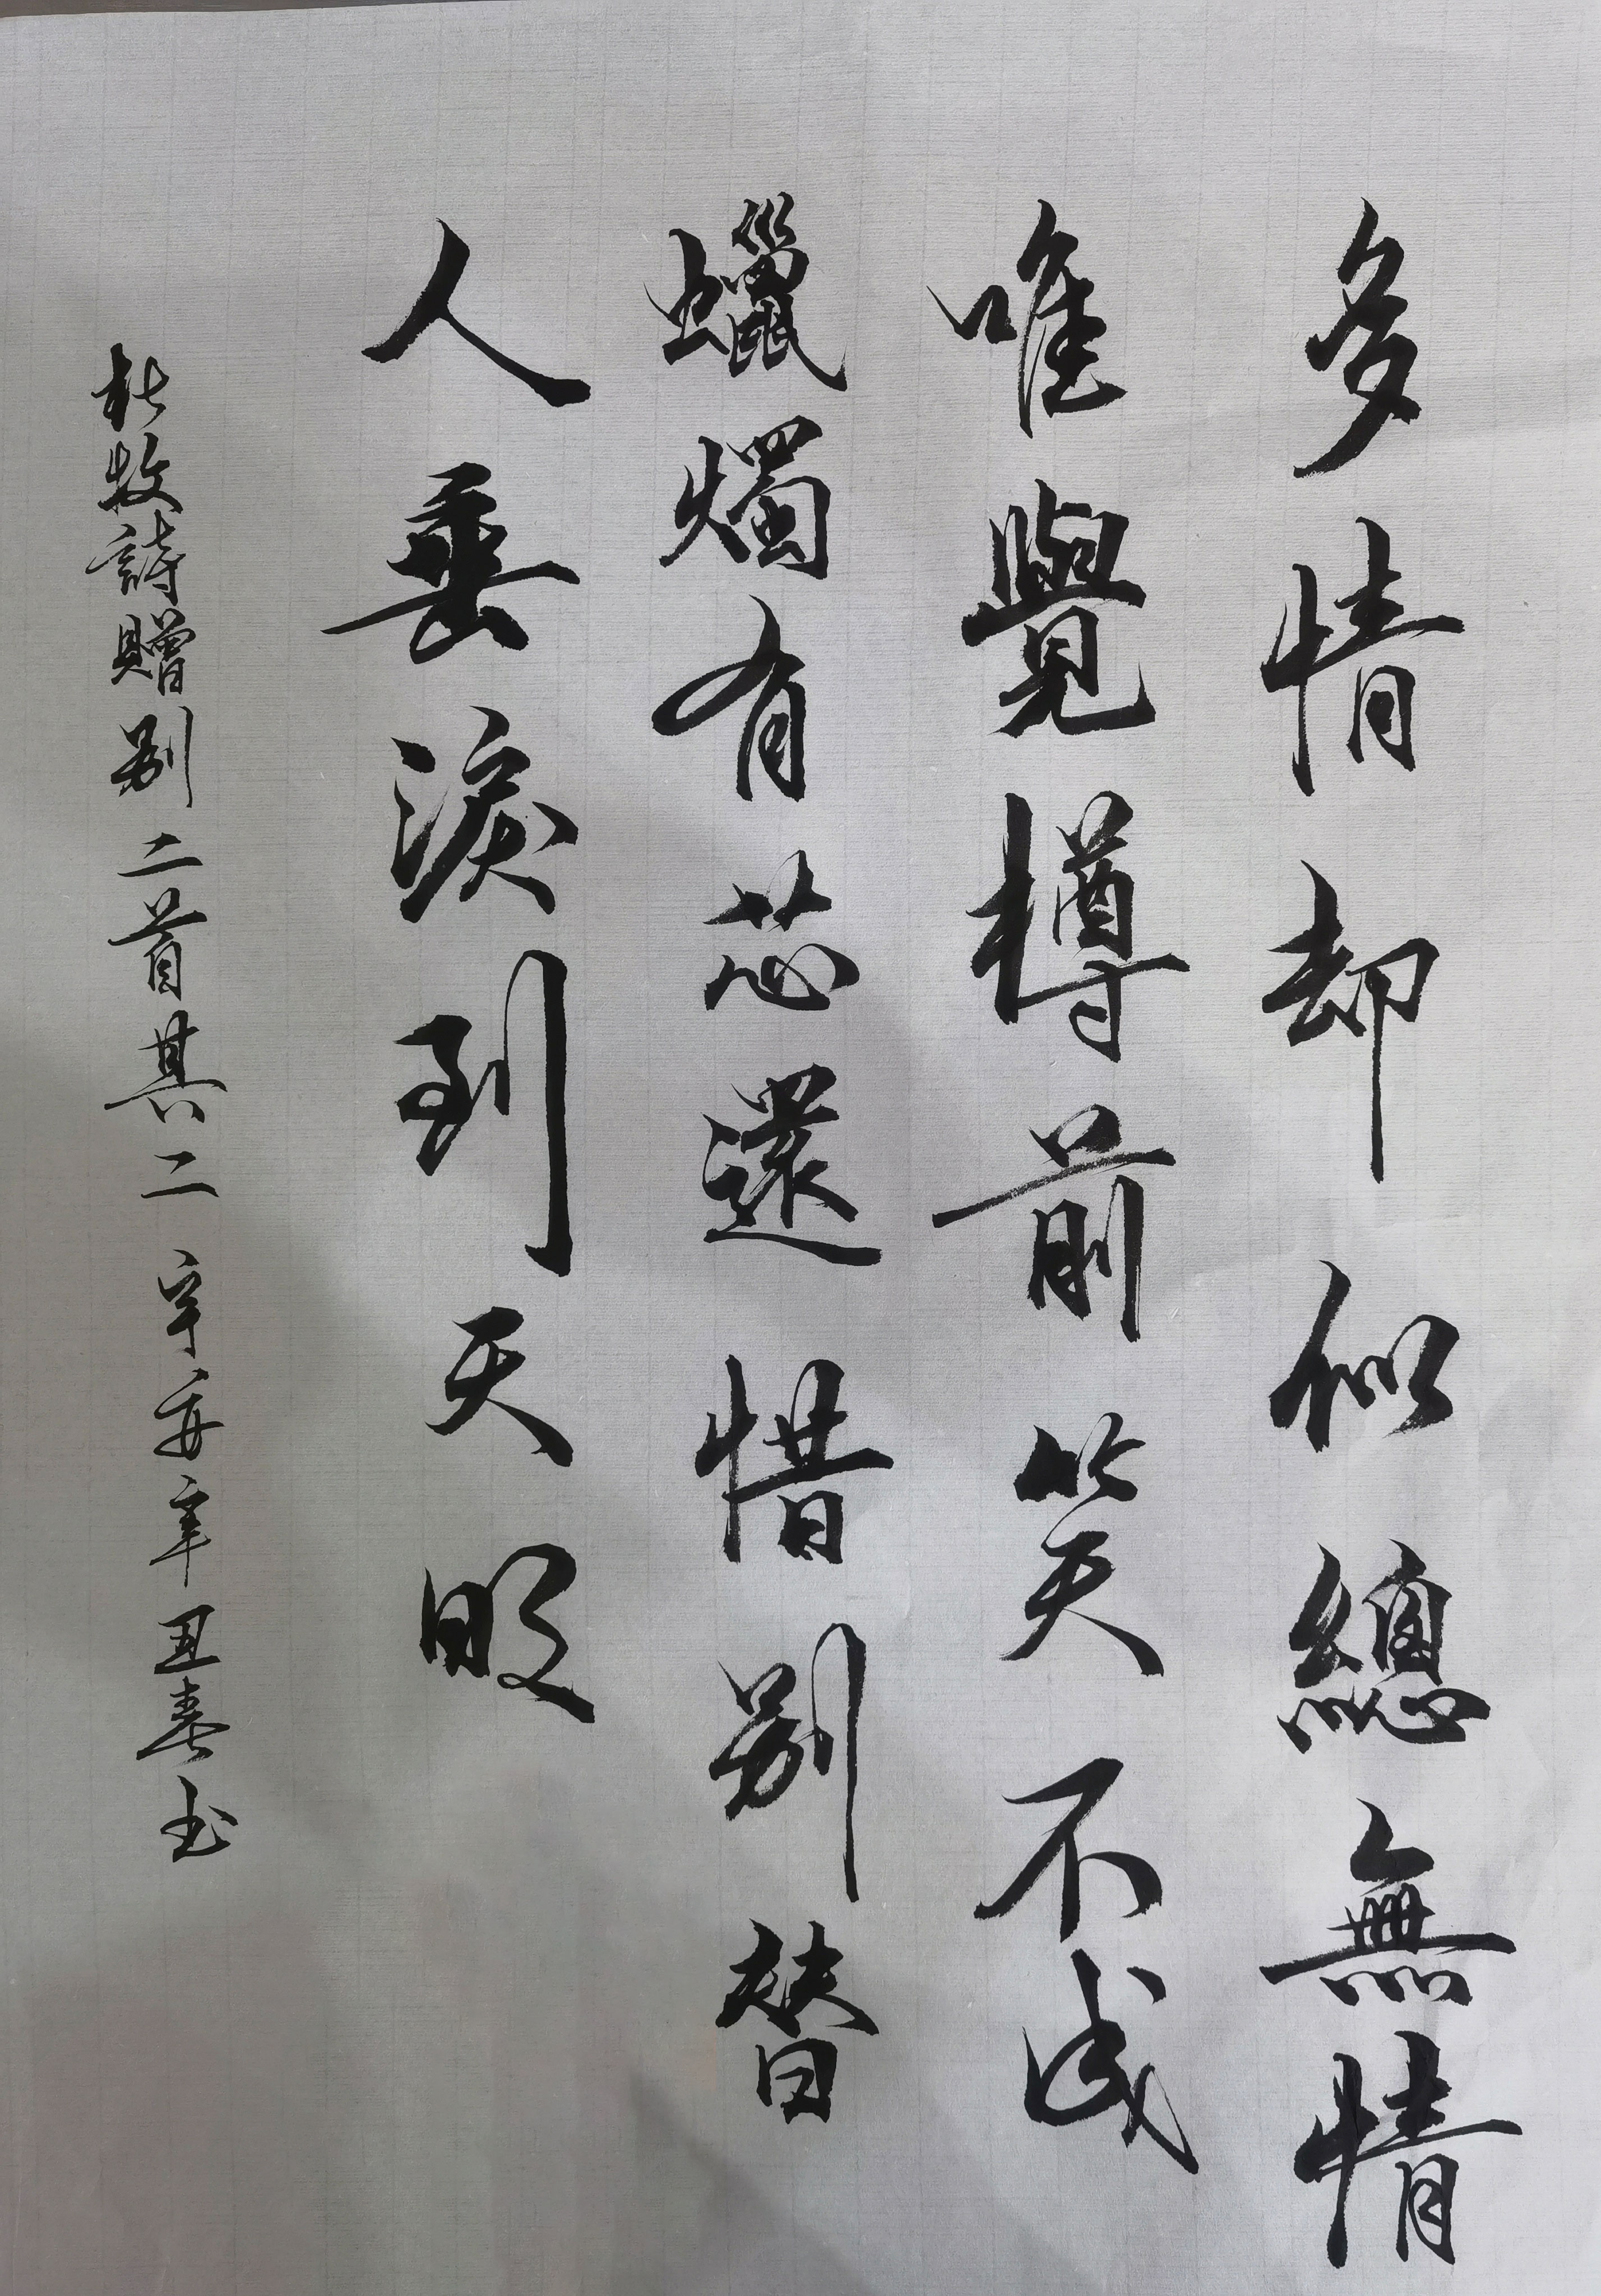 多情却似總無情
唯覺樽前笑不成
蠟燭有芯還惜别替
人垂淚到天明
杜牧詩贈别二首其二 宇安辛丑春书